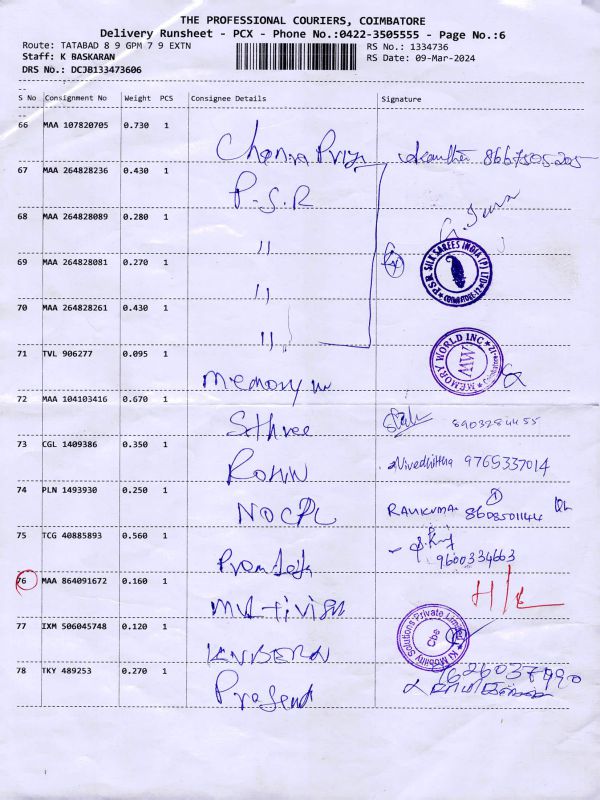 THE PROFESSIONAL COURIERS, COIMBATORE
Delivery Runsheet - PCX - Phone No.:0422-3505555 - Page No.:6
Route: TATABAD 8 9 GPM 7 9 EXTN RS No.: 1334736
Staff: K BASKARAN RS Date: 09-Mar-2024
DRS No.: DCJB133473606
S No Consignment No Weight PCS Consignee Details Signature
66 MAA 107820705 0.730 1
8667505205
67 MAA 264828236 0.430 1
P.S.R
68 MAA 264828089 0.280 1
"
69 MAA 264828081 0.270 1
PSR SILK SAREES INDIA (P) LTD COIMBATORE-12
"
70 MAA 264828261 0.430 1
"
71 TVL 906277 0.095 1
MEMORY WORLD INC Coimbatore-12 MW
memory w
72 MAA 104103416 0.670 1
Sthree 8903284455
73 CGL 1409386 0.350 1
Nivedhitha 9765337014
74 PLN 1493930 0.250 1
NOCPL RAVIKUMAR 8608501144
75 TCG 40885893 0.560 1
9600334663
76 MAA 864091672 0.160 1
H/L
multivish
77 IXM 506045748 0.120 1
Ki Mobility Solutions Private Limited Cbe
78 TKY 489253 0.270 1
9626037990